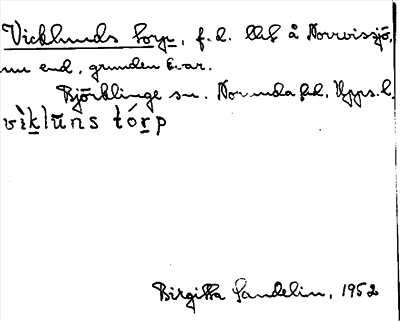 Vicklunds Torp, f.d. lht å Norrvissjö,
nu end. grunden kvar.
Björklinge sn. Norunda hd. Upps.l.
vìklūns tórp
Birgitta Sandelin, 1952